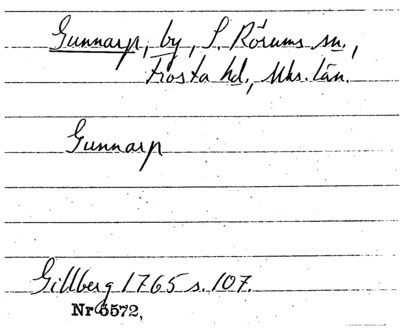 Gunnarp, by, S. Rörums sn.,
Frosta hd., Mhs. län.
Gunnarp
Gillberg 1765 s. 107.
Nr 5572,